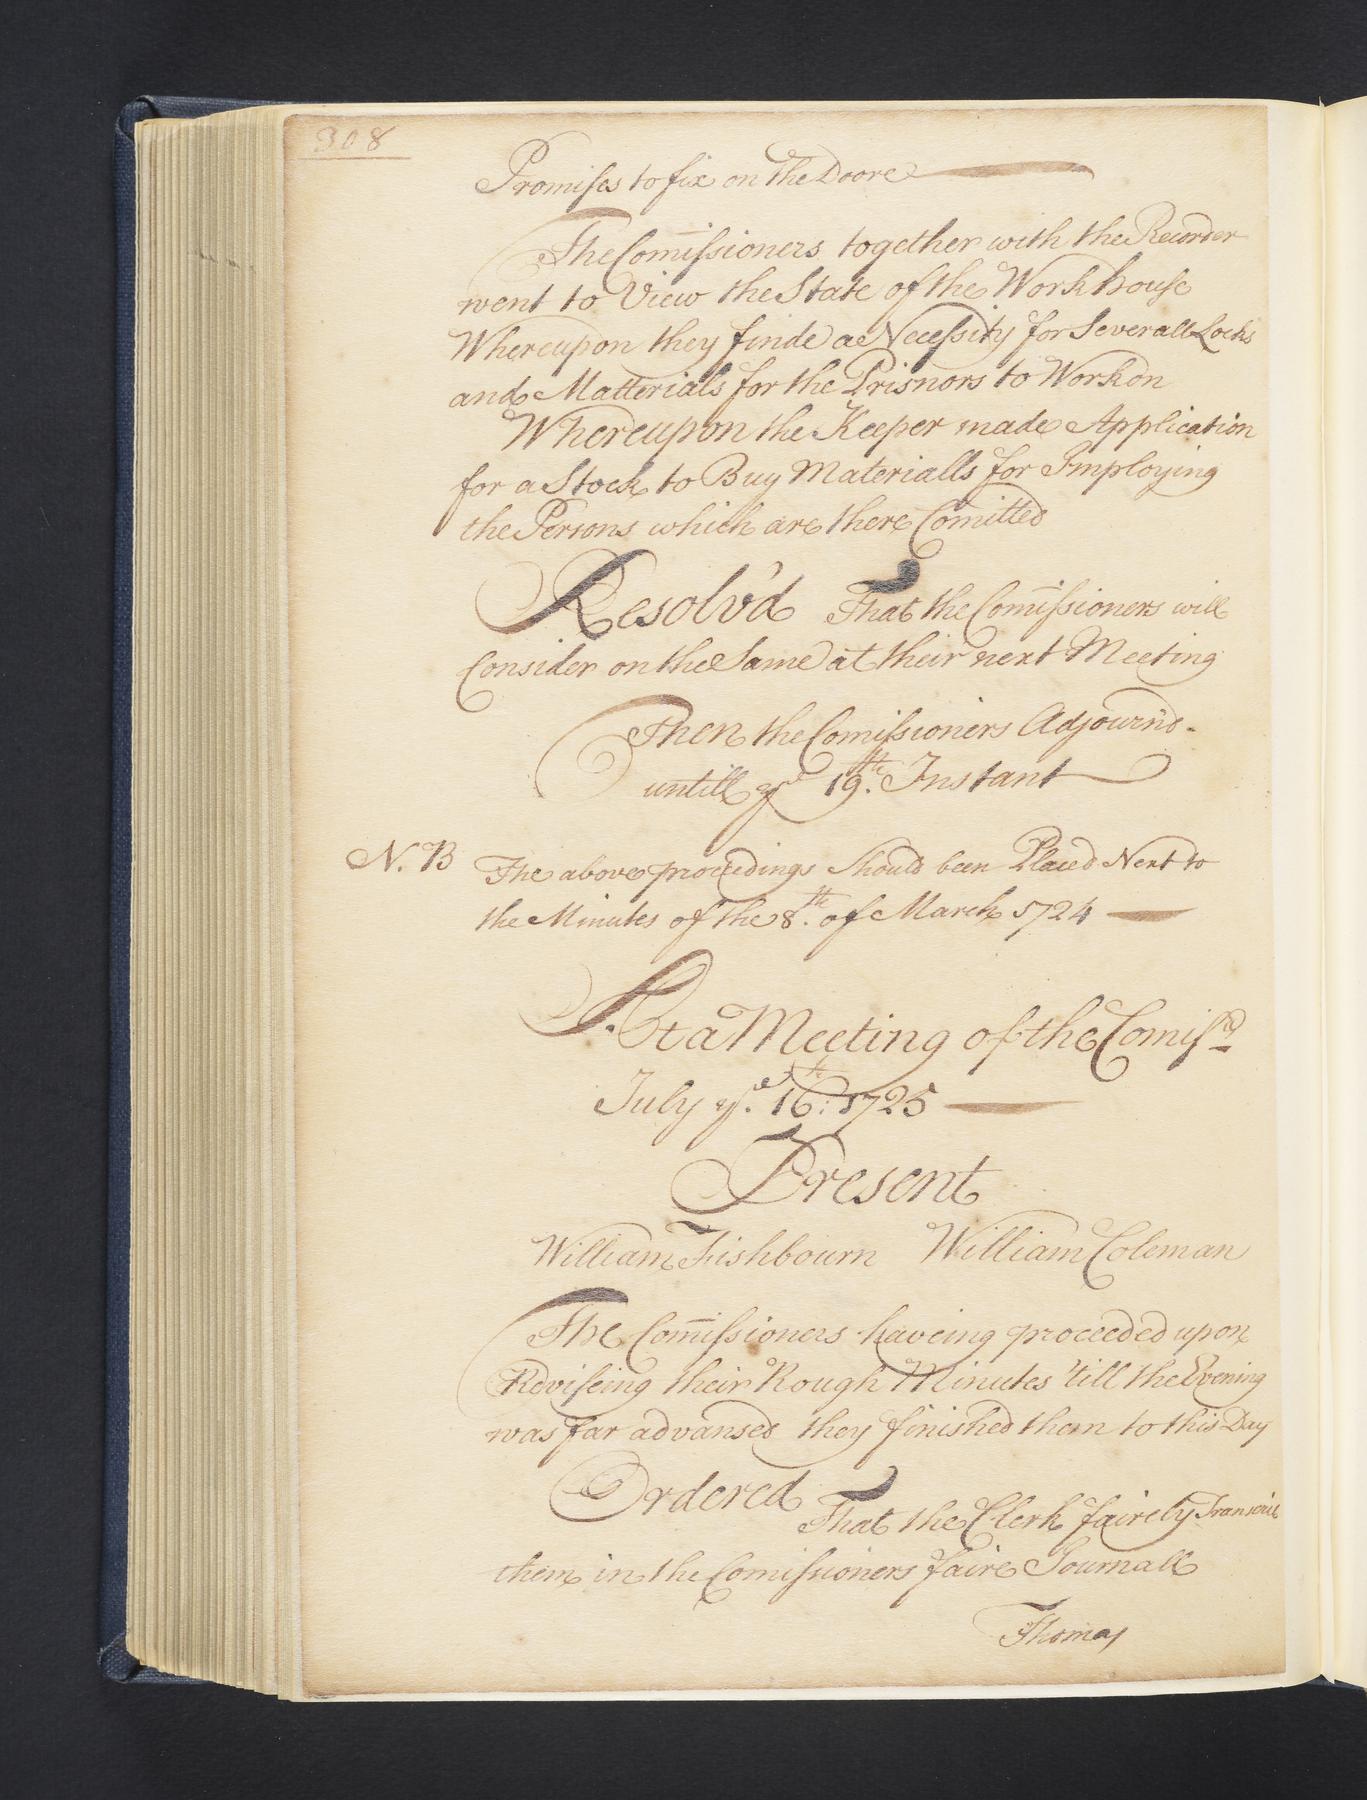 308
Promises to fix on the Doore
The Com̄issioners together with the Recorder
went to View the State of the Work house
Whereupon they finde a Necessity for Severall Locks
and Matterials for the Prisnors to Work on
Whereupon the Keeper made Application
for a Stock to Buy Materialls for Imploying
the Persons which are there Comitted
Resolv'd That the Com̄issioners will
Consider on the Same at their next Meeting
Then the Comissioners Adjourn'd
untill yᵉ 19th. Instant
N. B The above proceedings Should been Placed Next to
the Minutes of the 8th. of March 1724
At a Meeting of the Comissrs
July yᵉ. 16th: 1725
Present
William Fishbourn William Coleman
The Com̄issioners haveing proceeded upon
Reviseing their Rough Minutes 'till the Evening
was far advansed they finished them to this Day
Ordered That the Clerk fairely Transcribe
them in the Comissioners faire Journall
Thomas